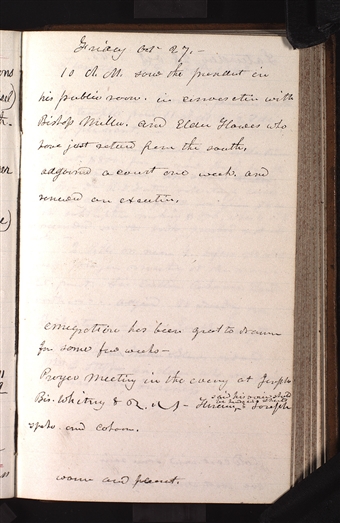 Friday Oct 27.—
10 A M. saw the prendent in
his public room. in conversation with
Bishop Miller. and Elder Hawes who
have just retured from the south.
adjorned a court one week. and
renewed an execution.
emegration has been great to
for some few weeks—
Prayer Meeting in the eveng at Josephs
Bis. Whitney & Hiram & Joseph
spoke. and
warm and pleasant.